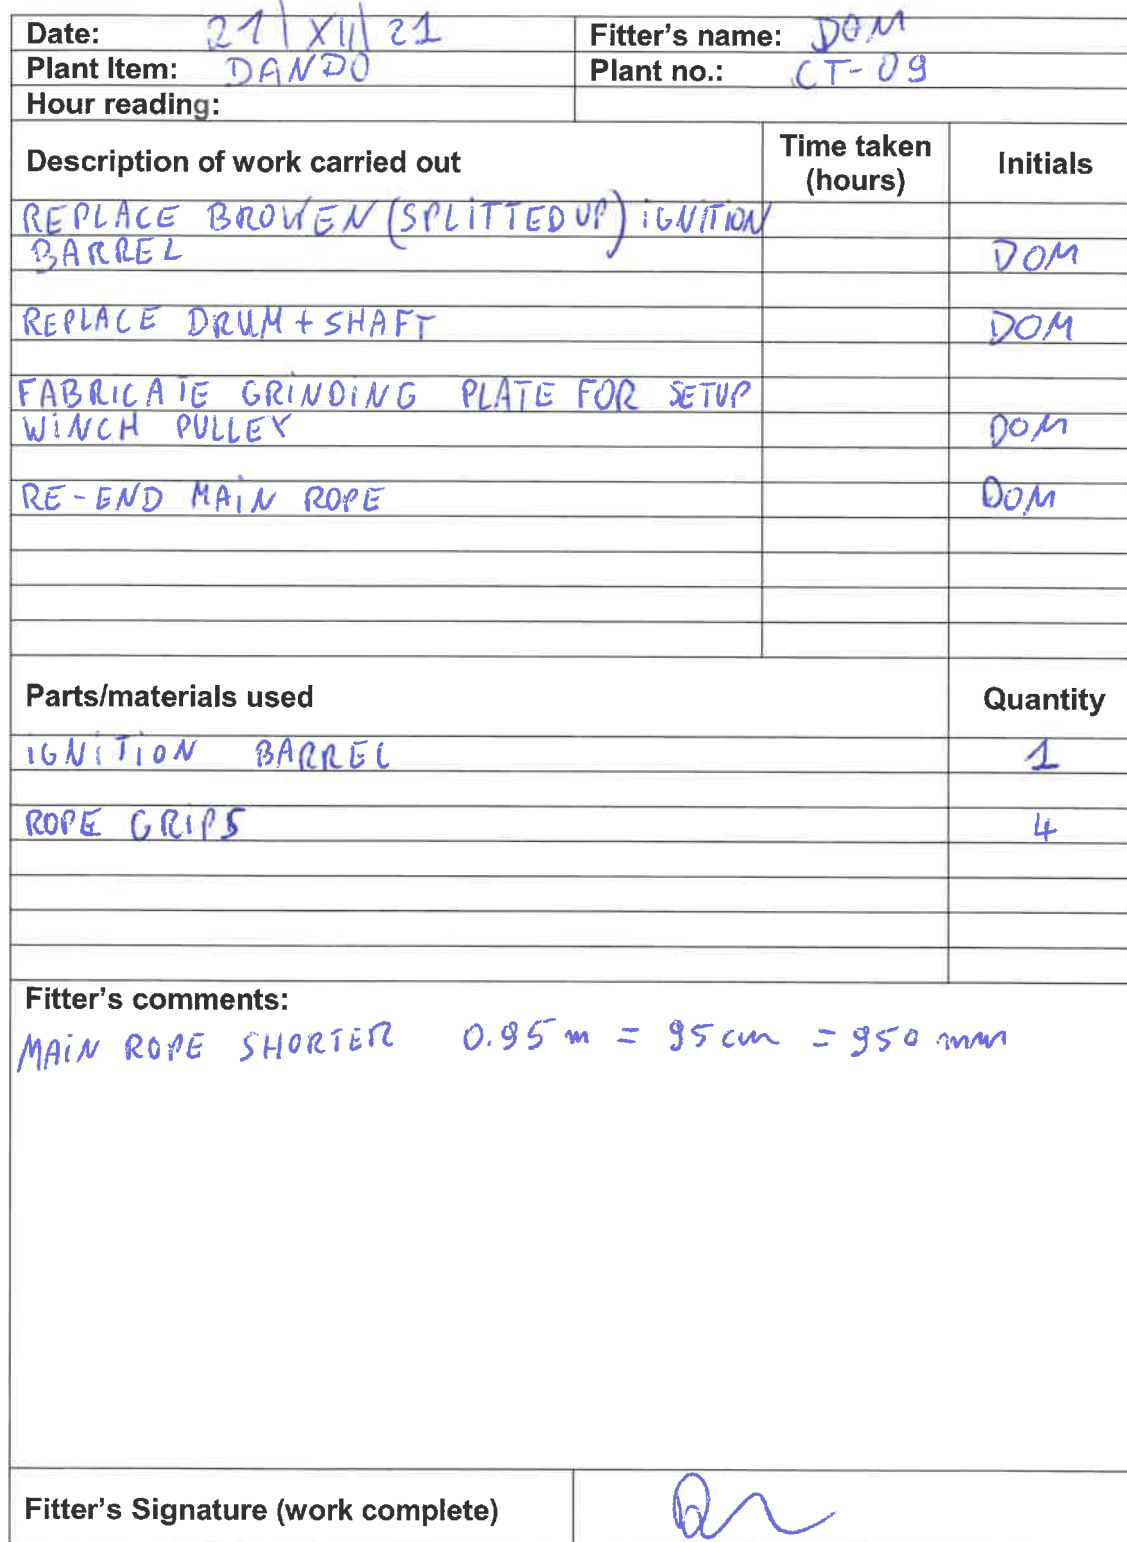 Date: 21/XII/21 Fitter's name: DOM
Plant Item: DANDO Plant no.: CT-09
Hour reading:
Description of work carried out Time taken (hours) Initials
REPLACE BROKEN (SPLITTED UP) IGNITION
BARREL DOM
REPLACE DRUM + SHAFT DOM
FABRICATE GRINDING PLATE FOR SETUP
WINCH PULLEY DOM
RE-END MAIN ROPE DOM
Parts/materials used Quantity
IGNITION BARREL 1
ROPE GRIPS 4
Fitter's comments:
MAIN ROPE SHORTER 0.95 m = 95 cm = 950 mm
Fitter's Signature (work complete)